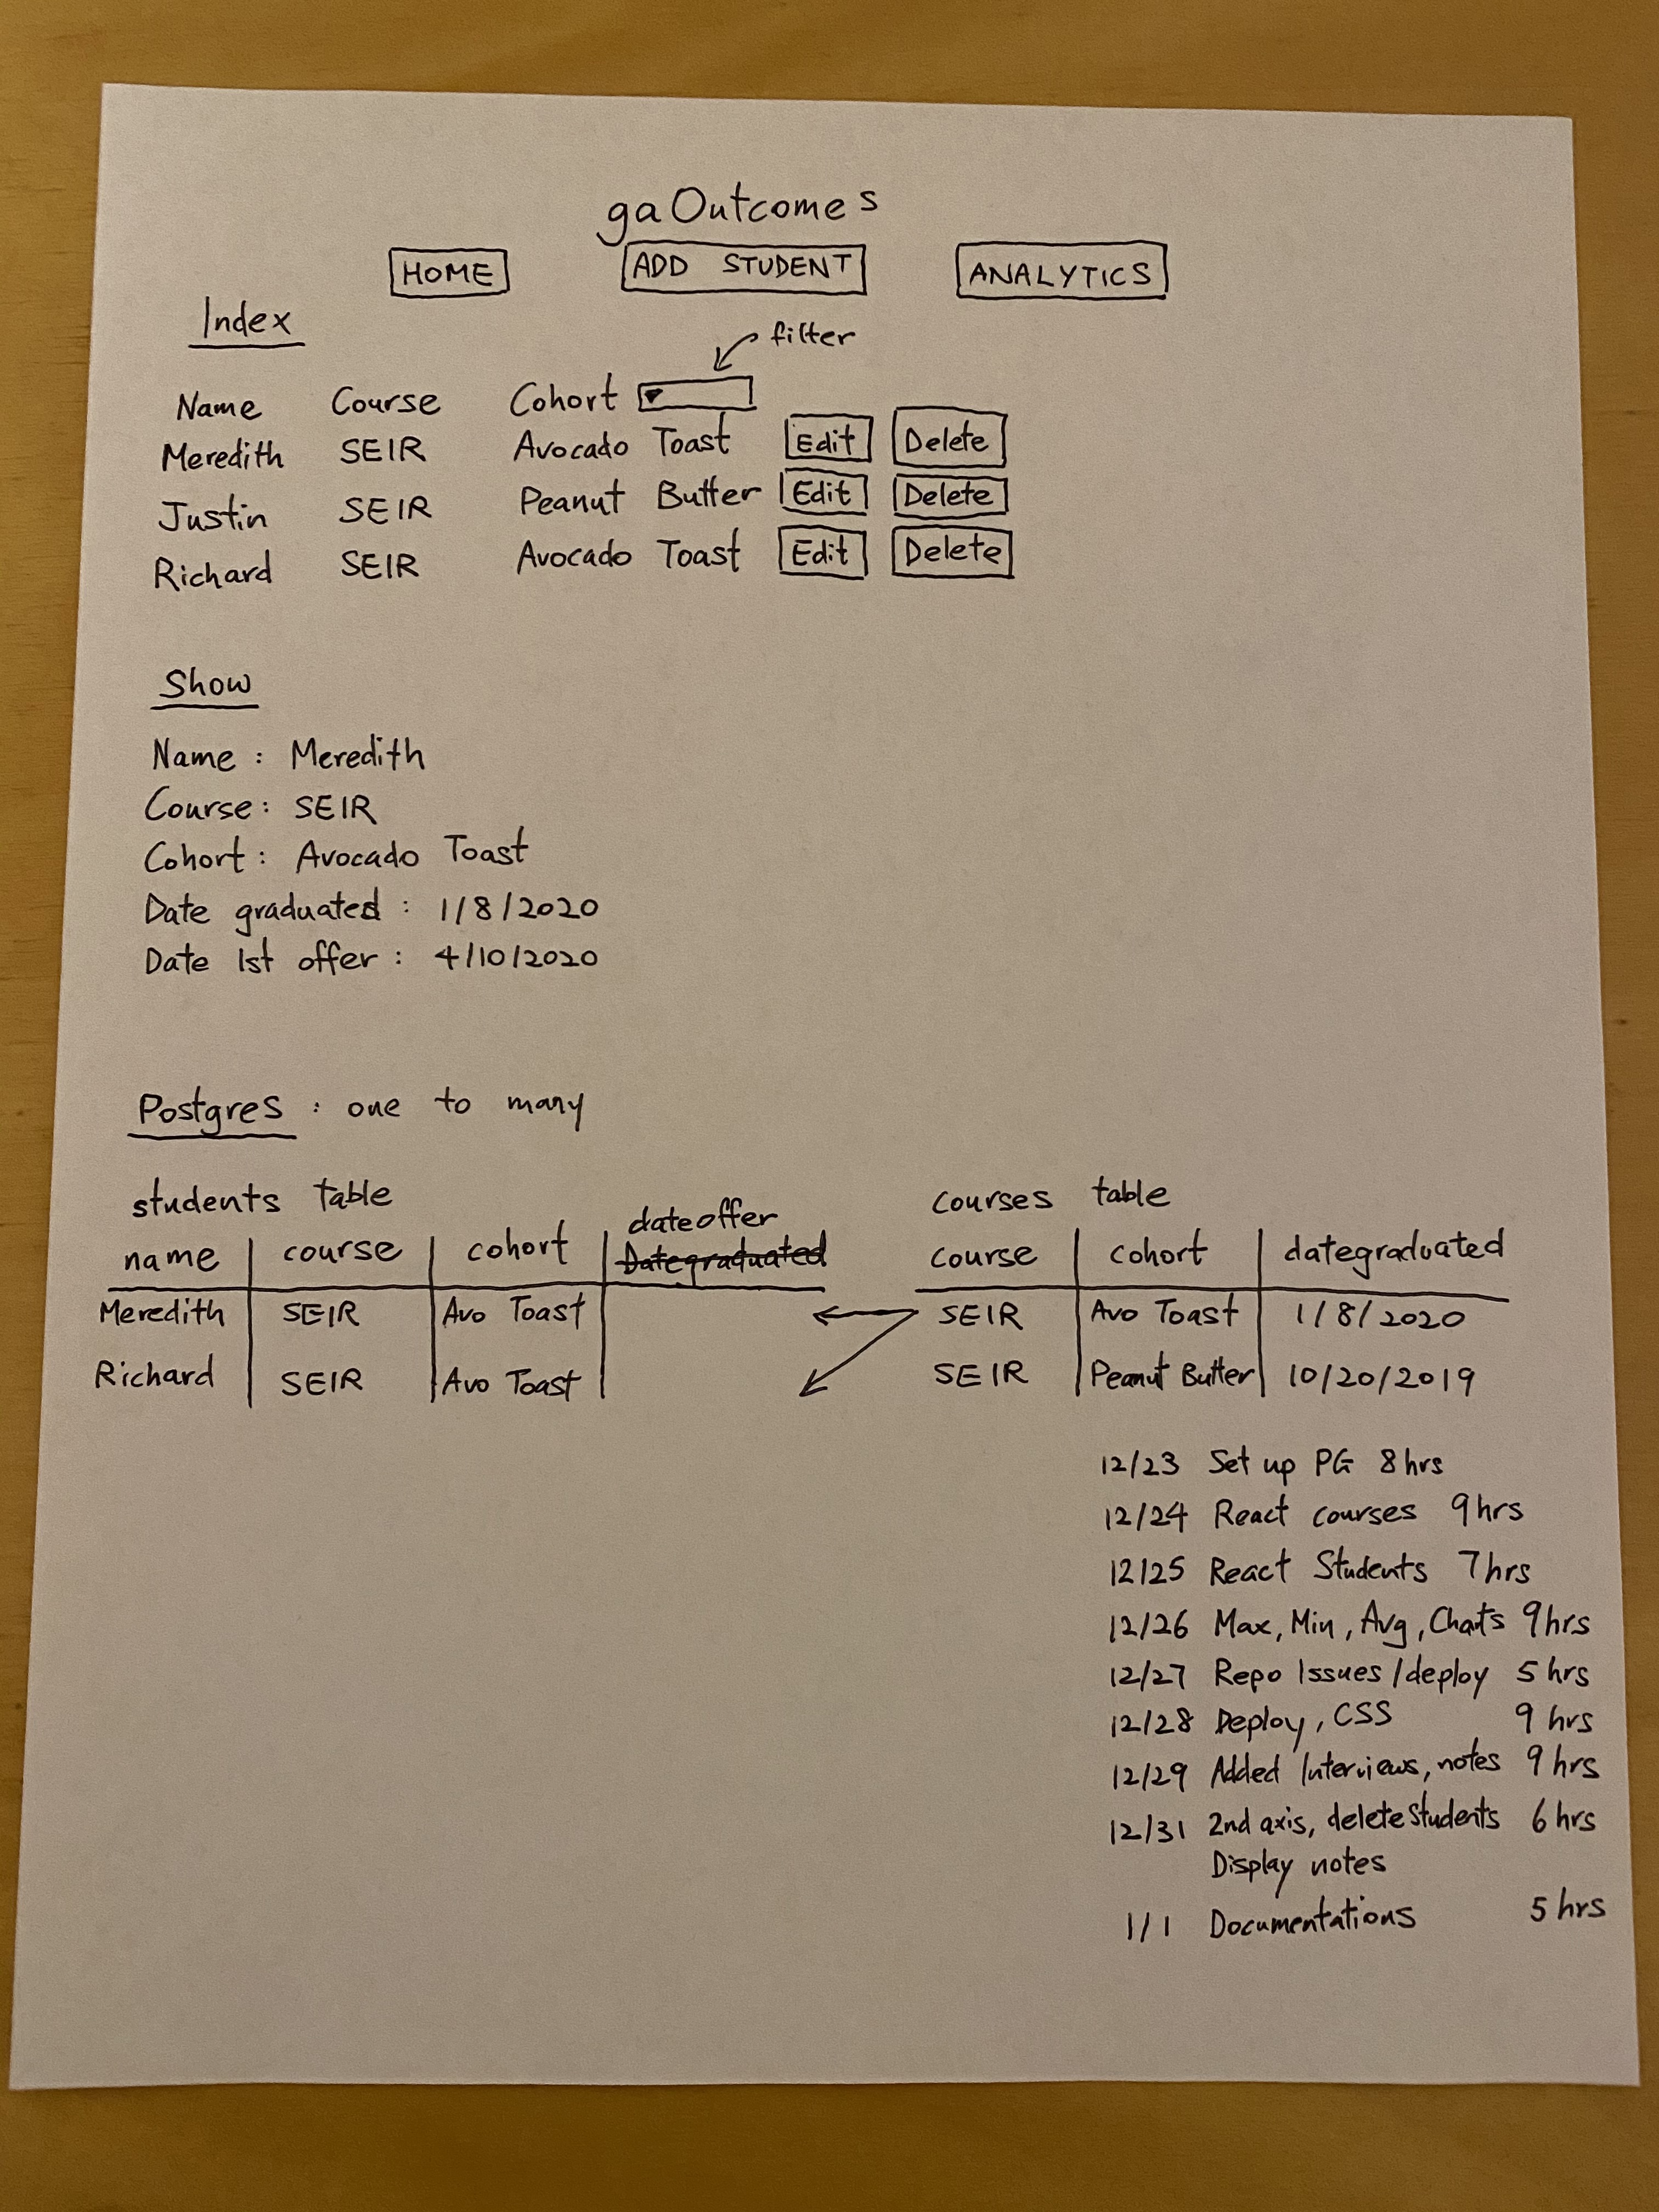 gaOutcomes
HOME ADD STUDENT ANALYTICS
Index
filter
Name Course Cohort
Meredith SEIR Avocado Toast Edit Delete
Justin SEIR Peanut Butter Edit Delete
Richard SEIR Avocado Toast Edit Delete
Show
Name : Meredith
Course : SEIR
Cohort : Avocado Toast
Date graduated : 1/8/2020
Date 1st offer : 4/10/2020
Postgres : one to many
students table
dateoffer
name course cohort Dategraduated
Meredith SEIR Avo Toast
Richard SEIR Avo Toast
courses table
course cohort dategraduated
SEIR Avo Toast 1/8/2020
SEIR Peanut Butter 10/20/2019
12/23 Set up PG 8hrs
12/24 React courses 9hrs
12/25 React Students 7hrs
12/26 Max, Min, Avg, Charts 9hrs
12/27 Repo Issues/deploy 5 hrs
12/28 Deploy, CSS 9 hrs
12/29 Added Interviews, notes 9 hrs
12/31 2nd axis, delete students 6 hrs
Display notes
1/1 Documentations 5 hrs